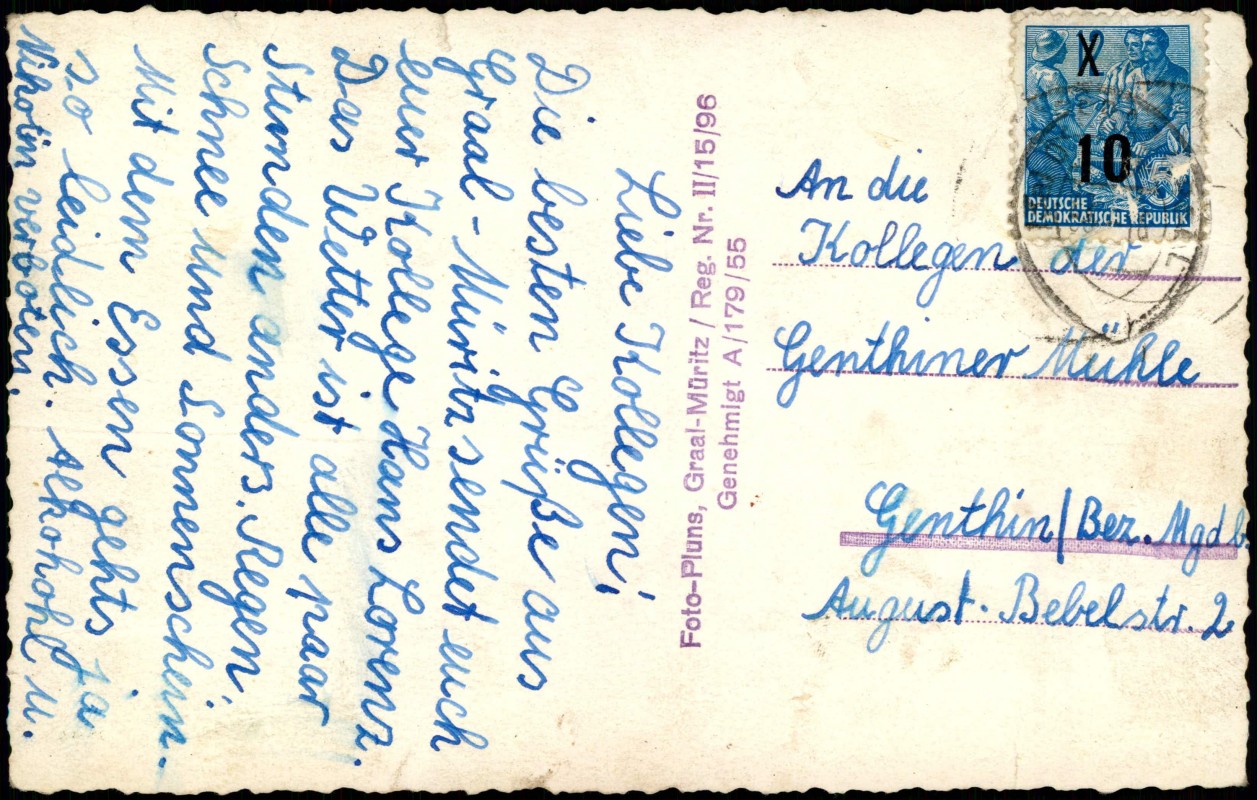 Liebe Kollegen!
Die besten Grüße aus
Graal-Müritz sendet euch
euer Kollege Hans Lorenz.
Das Wetter ist alle paar
Stunden anders. Regen,
Schnee und Sonnenschein.
Mit dem Essen gehts ja
so leidlich. Alkohohl u.
Nikotin verboten.
Foto-Pluns, Graal-Müritz / Reg. Nr. II/15/96
Genehmigt A/179/55
X
10
DEUTSCHE
DEMOKRATISCHE REPUBLIK
An die
Kollegen der
Genthiner Mühle
Genthin/Bez. Mgdb.
August-Bebelstr. 2